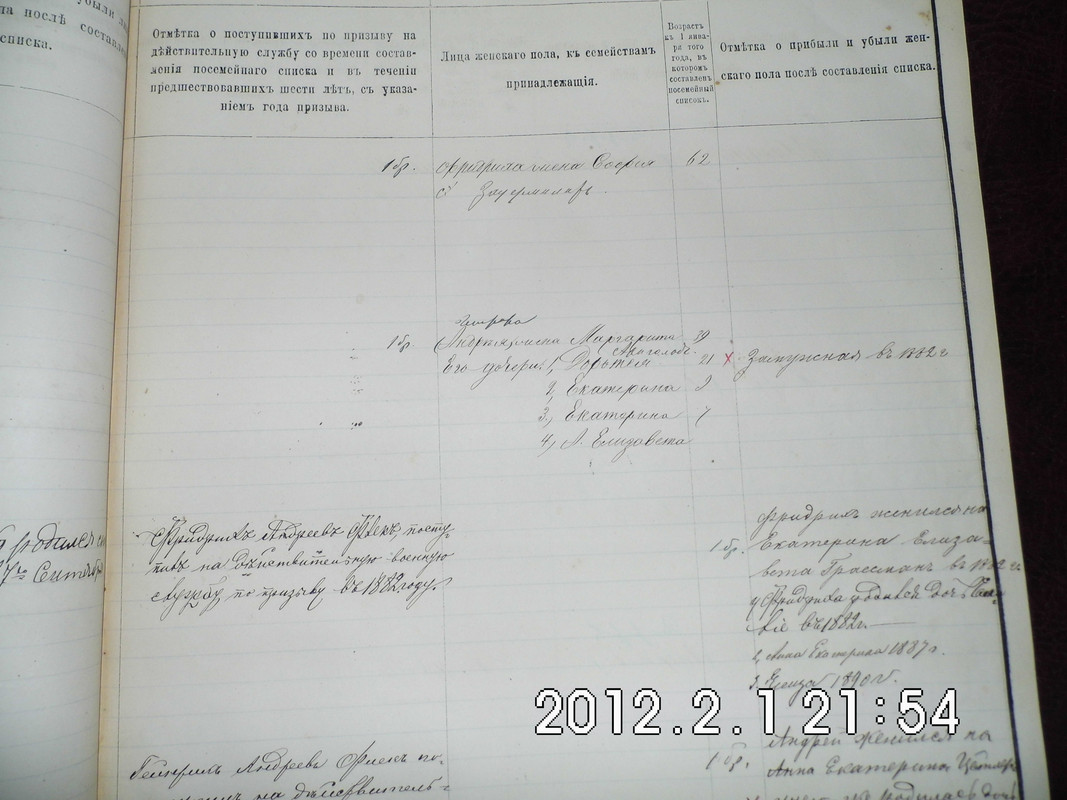 были ж
ла послѣ составлен
списка.
Отмѣтка о поступившихъ по призыву на
дѣйствительную службу со времени состав-
ленія посемейнаго списка и въ теченіи
предшествовавшихъ шести лѣтъ, съ указа-
ніемъ года призыва.
Лица женскаго пола, къ семействамъ
принадлежащія.
Возрастъ
къ 1 янва-
ря того
года, въ
которомъ
составленъ
посемейный
списокъ.
Отмѣтка о прибыли и убыли жен-
скаго пола послѣ составленія списка.
1 бр. Фридриха жена София 62
1 бр. Маргарита 39
Его дочери: 1, Доротея 21 х Замужная въ 1882 г
2, Екатерина 9
3, Екатерина 7
4, А. Елизавета
родился
Сентября
Фридрихъ Андреевъ Финкъ, посту-
пилъ на действительную военную
службу по призыву въ 1882 году.
Фридрихъ женился на
1 бр. Екатерина Елиза-
вета Грассманъ въ 1882 г.
у Фридриха родилась дочь
въ 1882 г.
2, Анна Екатерина 1887 г.
3, 1890 г.
2012.2.1 21:54
Андрей женился на
1 бр. Анна Екатерина
Андреевъ Финкъ по-
на действитель-